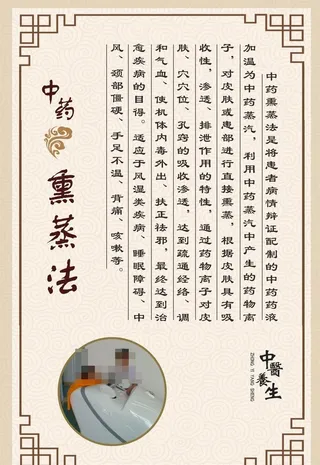 中药熏蒸法
中药熏蒸法是将患者病情辩证配制的中药药液
加温为中药蒸汽，利用中药蒸汽中产生的药物离
子，对皮肤或患部进行直接熏蒸，根据皮肤具有吸
收性，渗透、排泄作用的特性，通过药物离子对皮
肤、穴穴位、孔窍的吸收渗透，达到疏通经络、调
和气血、使机体内毒外出、扶正祛邪，最终达到治
愈疾病的目得。适应于风湿类疾病、睡眠障碍、中
风、颈部僵硬、手足不温、背痛、咳嗽等。
中醫養生